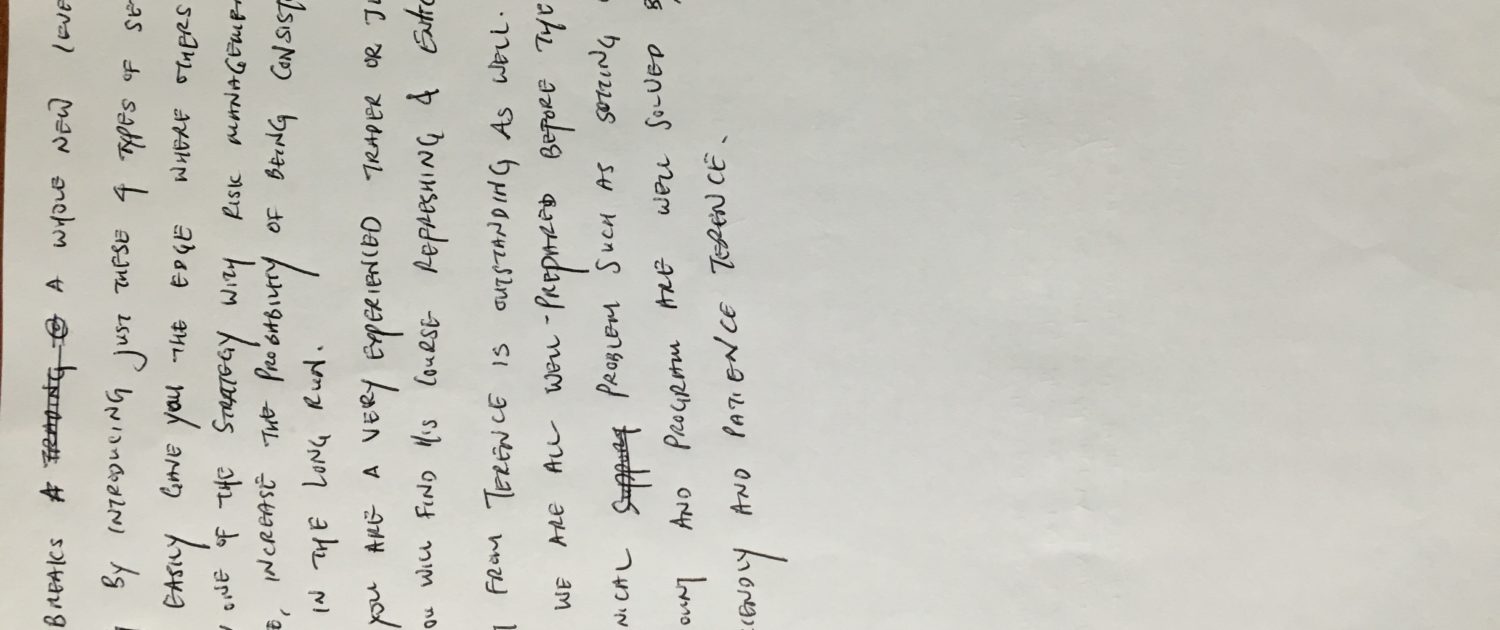 BREAKS A TRADING A WHOLE NEW LEVE
BY INTRODUCING JUST THESE 4 TYPES OF SE
EASILY GAVE YOU THE EDGE WHERE OTHERS
ONE OF THE STRATEGY WITH RISK MANAGEME
E, INCREASE THE PROBABILITY OF BEING CONSIST
IN THE LONG RUN.
YOU ARE A VERY EXPERIENCED TRADER OR JU
OU WILL FIND HIS COURSE REFRESHING & ENHC
FROM TERENCE IS OUTSTANDING AS WELL.
WE ARE ALL WELL-PREPARED BEFORE THE
NICAL SUPPORT PROBLEM SUCH AS SETTING
OUNT AND PROGRAM ARE WELL SOLVED B
IENDLY AND PATIENCE TERENCE.